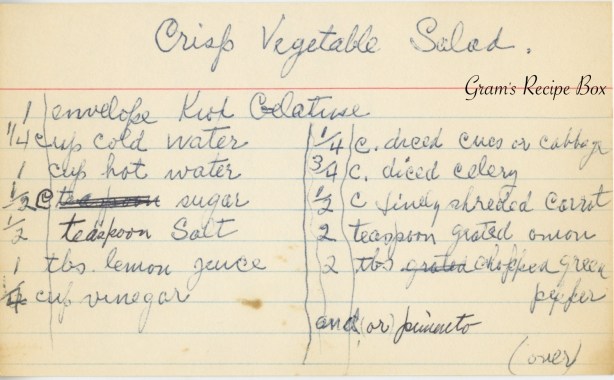 Crisp Vegetable Salad.
Gram's Recipe Box
1 envelope Knox Gelatine
1/4 cup cold water
1 cup hot water
1/2 C teaspoon sugar
1/2 teaspoon Salt
1 tbs. lemon juice
1/4 cup vinegar
1/4 c. diced cucs or cabbage
3/4 c. diced celery
1/2 c finely shreded carrot
2 teaspoon grated onion
2 tbs grated chopped green
pepper
and (or) pimineto
(over)